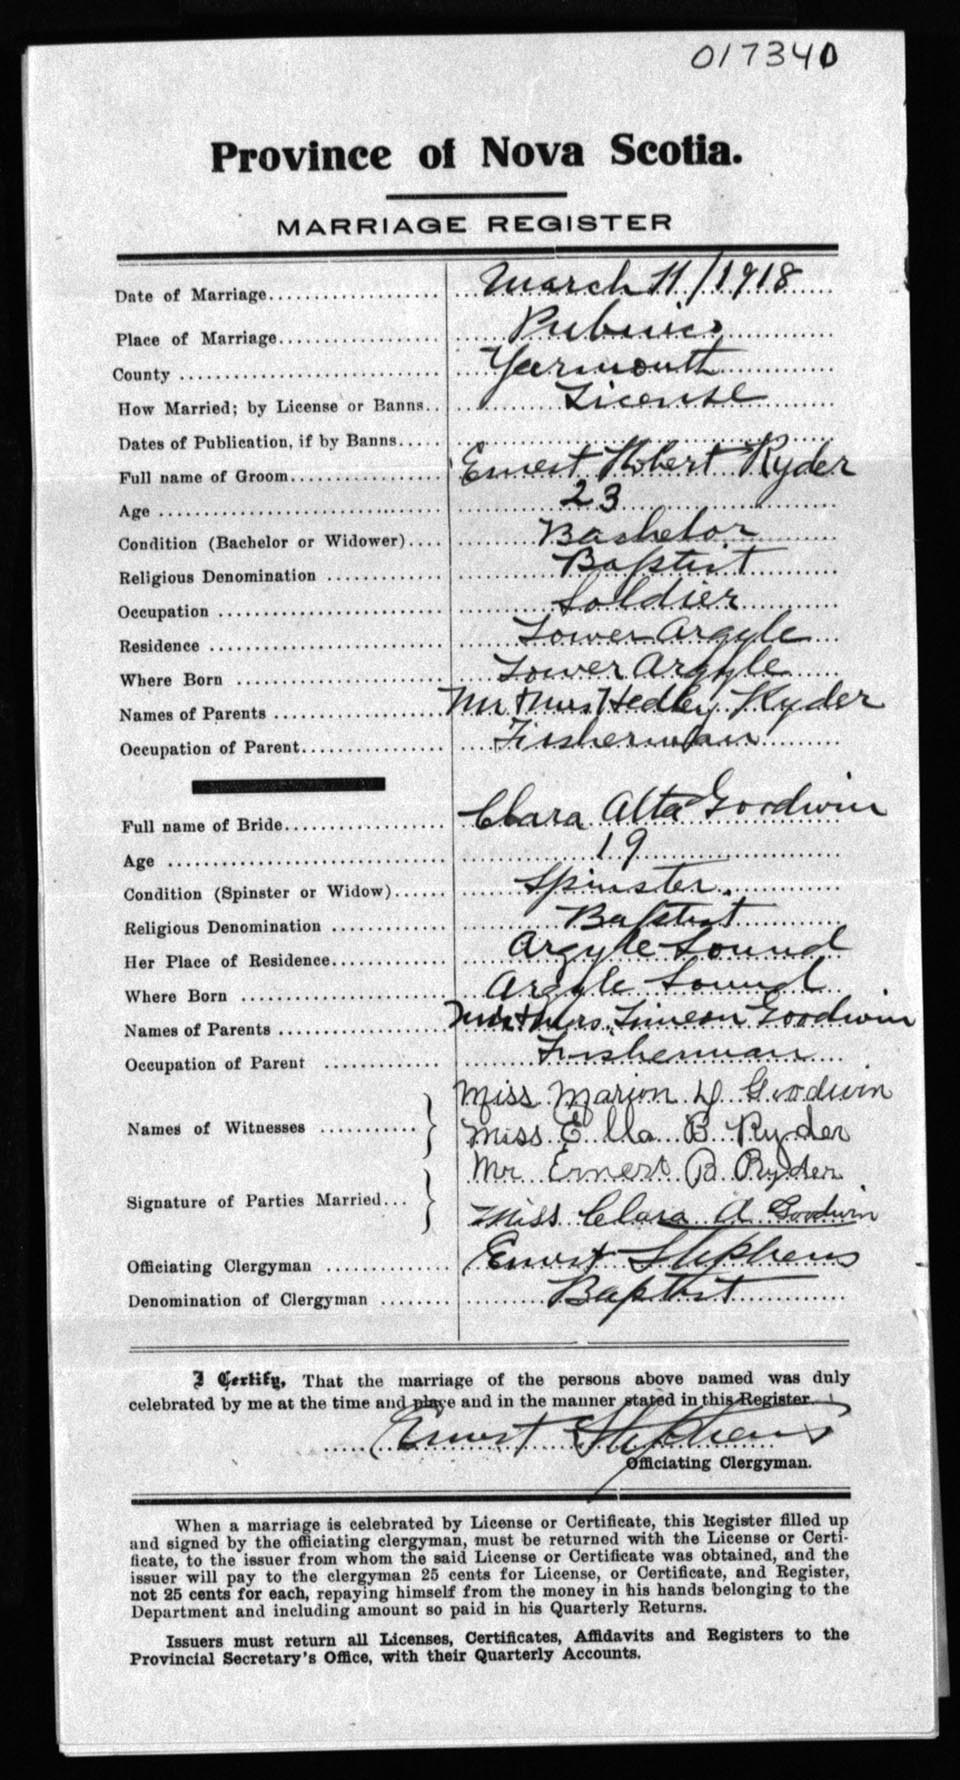 017340
Province of Nova Scotia.
MARRIAGE REGISTER
Date of Marriage.................... March 11/1918
Place of Marriage................... Pubnico
County .............................. Yarmouth
How Married; by License or Banns.. License
Dates of Publication, if by Banns.....
Full name of Groom.................. Ernest Robert Ryder
Age ................................. 23
Condition (Bachelor or Widower).... Bachelor
Religious Denomination ............. Baptist
Occupation .......................... Soldier
Residence ........................... Lower Argyle
Where Born ......................... Lower Argyle
Names of Parents ................... Mr & Mrs Hedley Ryder
Occupation of Parent................ Fisherman
Full name of Bride................... Clara Alta Goodwin
Age ................................. 19
Condition (Spinster or Widow)...... Spinster.
Religious Denomination ............. Baptist
Her Place of Residence.............. Argyle Sound
Where Born ......................... Argyle Sound
Names of Parents ................... Mr & Mrs. Simeon Goodwin
Occupation of Parent ............. Fisherman
Miss Marion D Goodwin
Names of Witnesses ........... } Miss Ella B Ryder
Mr Ernest B Ryder
Signature of Parties Married... }
Miss Clara A Goodwin
Officiating Clergyman .............. Ernest Stephens
Denomination of Clergyman ........ Baptist
I Certify, That the marriage of the persons above named was duly
celebrated by me at the time and place and in the manner stated in this Register.
Ernest Stephens
Officiating Clergyman.
When a marriage is celebrated by License or Certificate, this Register filled up
and signed by the officiating clergyman, must be returned with the License or Certi-
ficate, to the issuer from whom the said License or Certificate was obtained, and the
issuer will pay to the clergyman 25 cents for License, or Certificate, and Register,
not 25 cents for each, repaying himself from the money in his hands belonging to the
Department and including amount so paid in his Quarterly Returns.
Issuers must return all Licenses, Certificates, Affidavits and Registers to the
Provincial Secretary's Office, with their Quarterly Accounts.